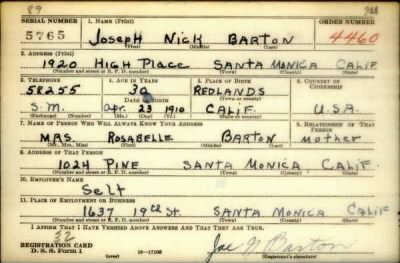 89 244
SERIAL NUMBER 1. NAME (Print) ORDER NUMBER
5765 Joseph Nick Barton 4460
(First) (Middle) (Last)
2. ADDRESS (Print)
1920 High Place Santa Monica Calif.
(Number and street or R. F. D. number) (Town) (County) (State)
3. TELEPHONE 4. AGE IN YEARS 5. PLACE OF BIRTH 6. COUNTRY OF CITIZENSHIP
58255 30 Redlands
DATE OF BIRTH
S.M. Apr. 23 1910 Calif. U.S.A.
(Exchange) (Number) (Mo.) (Day) (Yr.) (State or country)
7. NAME OF PERSON WHO WILL ALWAYS KNOW YOUR ADDRESS 8. RELATIONSHIP OF THAT PERSON
Mrs Rosabelle Barton mother
(Mr., Mrs., Miss) (First) (Middle) (Last)
9. ADDRESS OF THAT PERSON
1024 Pine Santa Monica Calif.
(Number and street or R. F. D. number) (Town) (County) (State)
10. EMPLOYER'S NAME
Self
11. PLACE OF EMPLOYMENT OR BUSINESS
1637 19th St. Santa Monica Calif
(Number and street or R. F. D. number) (Town) (County) (State)
I AFFIRM THAT I HAVE VERIFIED ABOVE ANSWERS AND THAT THEY ARE TRUE.
32
REGISTRATION CARD
D. S. S. Form 1 (over) 16—17105 (Registrant's signature)
Joe N Barton